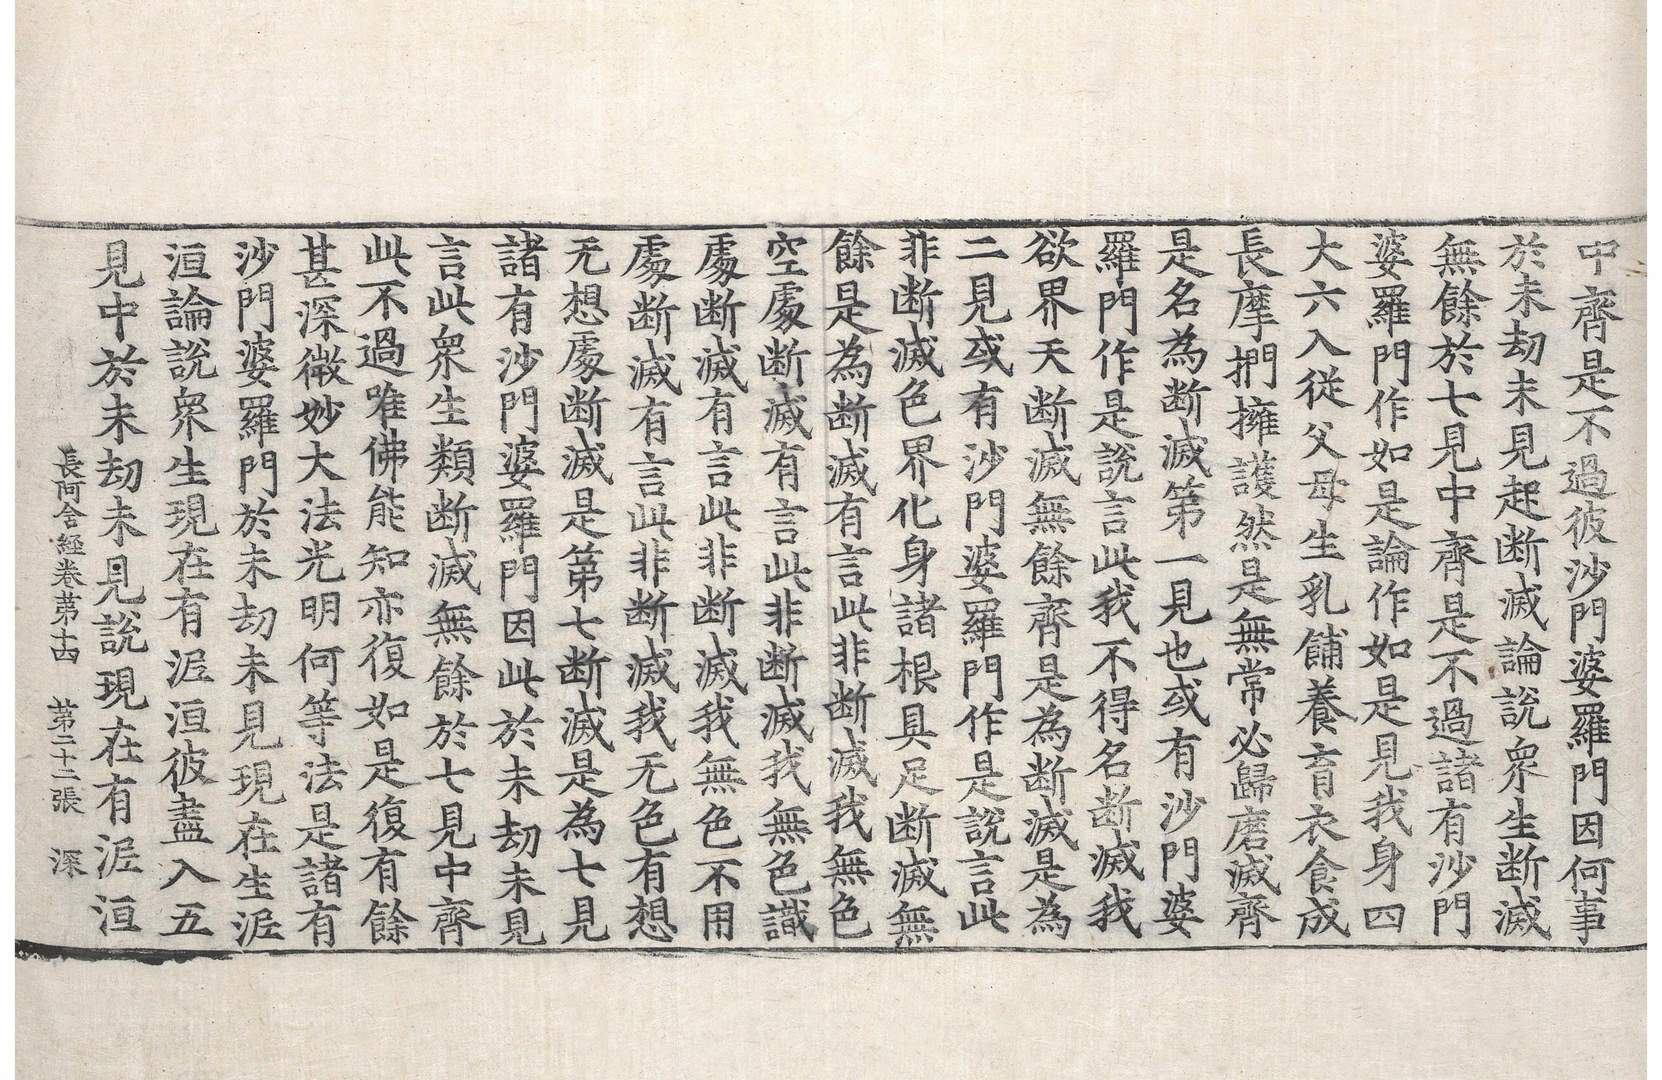 中齊是不過彼沙門婆羅門因何事
於未劫未見起断滅論說衆生断滅
無餘於七見中齊是不過諸有沙門
婆羅門作如是論作如是見我身四
大六入從父母生乳餔養育衣食成
長摩捫擁護然是無常必歸磨滅齊
是名為断滅第一見也或有沙門婆
羅門作是說言此我不得名断滅我
欲界天断滅無餘齊是為断滅是為
二見或有沙門婆羅門作是說言此
非断滅色界化身諸根具足断滅無
餘是為断滅有言此非断滅我無色
空處断滅有言此非断滅我無色識
處断滅有言此非断滅我無色不用
處断滅有言此非断滅我无色有想
无想處断滅是第七断滅是為七見
諸有沙門婆羅門因此於未劫未見
言此衆生類断滅無餘於七見中齊
此不過唯佛能知亦復如是復有餘
甚深微妙大法光明何等法是諸有
沙門婆羅門於未劫未見現在生泥
洹論說衆生現在有泥洹彼盡入五
見中於未劫未見說現在有泥洹
長阿含經卷第十四 第二十二張 深